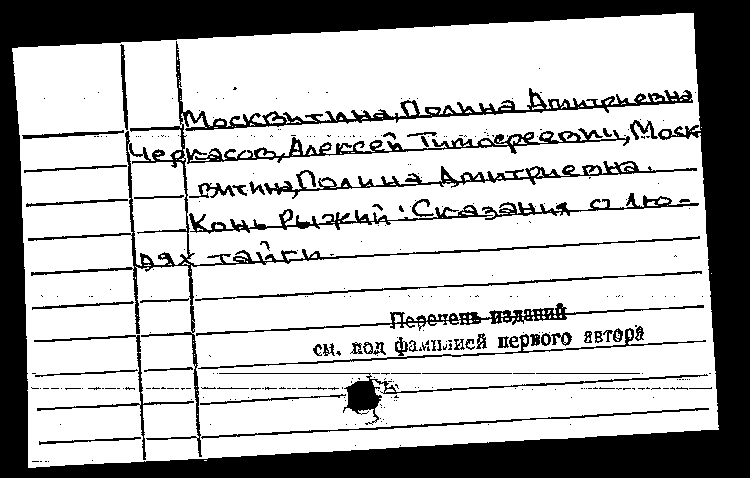 Москвитина, Полина Дмитриевна
Черкасов, Алексей Тимофеевич, Моск
витина, Полина Дмитриевна.
Конь Рыжий: Сказания о лю-
дях тайги.
Перечень изданий
см. под фамилией первого автора